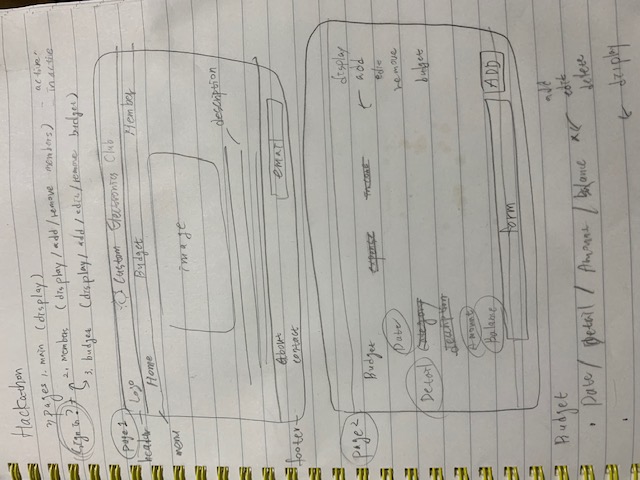 Hackathon
pages 1. main (display)
Sign in? 2. members (display / add / remove members) - active inactive
3. budget (display / add / edit / remove budget)
page 1
header
Logo Custom Electronics Club
menu
Home Budget Member
image
description
footer
About
contact
email
page 2
Budget expense income
display
add
edit
remove
budget
Date
Detail
category
description
Amount
Balance
form
ADD
Budget
· Date / Detail / Amount / balance
add
edit
delete
display